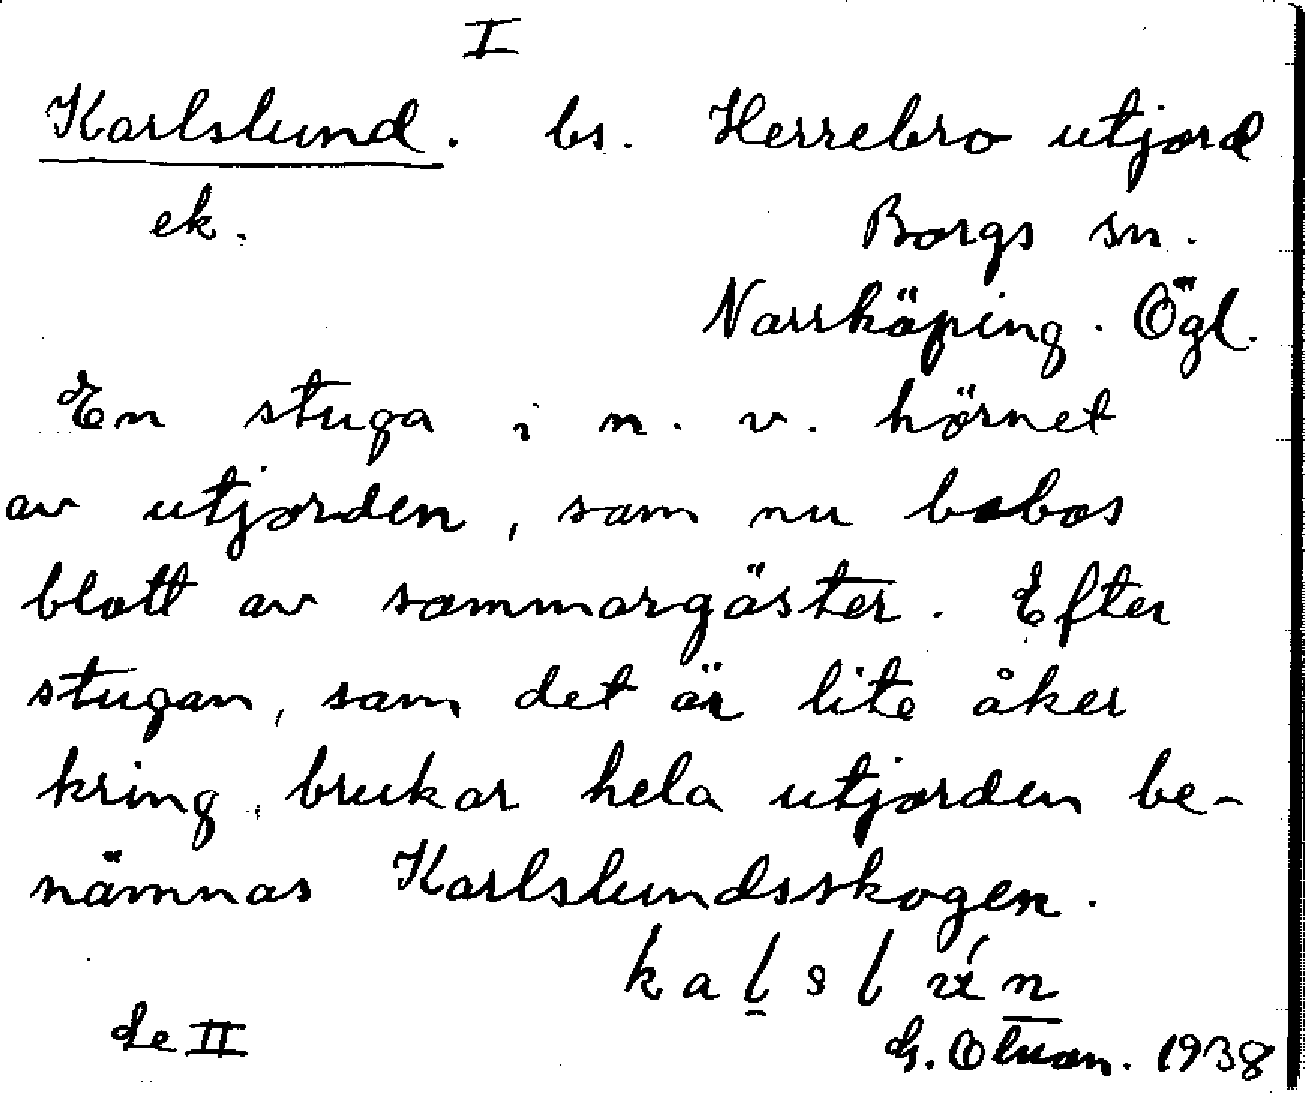 I
Karlslund. bs. Herrebro utjord
ek. Borgs sn.
Norrköping. Ögl.
En stuga i n. v. hörnet
av utjorden, som nu bebos
blott av sommargäster. Efter
stugan, som det är lite åker
kring, brukar hela utjorden be-
nämnas Karlslundsskogen.
k a l s l ú n
Se II G. 1938